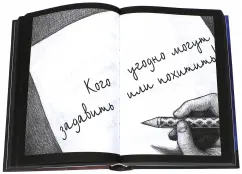 Кого угодно могут
задавить или похитить!